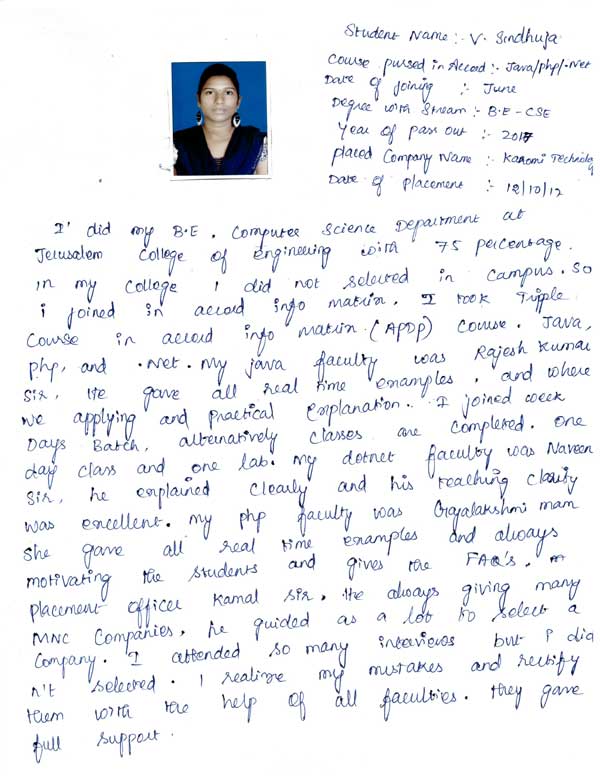 Student Name :- V. Sindhuja
Course pursed in Accord :- Java/php/.Net
Date of joining :- June
Degree with Stream :- B.E - CSE
Year of pass out :- 2017
placed Company Name :- Kaaomi Technology
Date of placement :- 12/10/17
I' did my B.E. Computer Science Department at
Jerusalem College of engineering with 75 percentage.
in my College I did not selected in Campus. So
i joined in accord info matrix. I took Tripple
Course in accord info matrix (APDP) Course. Java,
php, and .Net. My java faculty was Rajesh Kumar
Sir, He gave all real time examples, and where
we applying and practical Explanation. I joined week
Days Batch, alternatively classes are completed. one
day class and one lab. my dotnet faculty was Naveen
Sir, he explained Clearly and his teaching Clarity
was excellent. my php faculty was Gajalakshmi mam
She gave all real time examples and always
motivating the students and gives the FAQ's.
Placement officer Kamal Sir. He always giving many
MNC Companies. he guided as a lot to select a
Company. I attended so many interviews but i did
n't selected. I realize my mistakes and rectify
them with the help of all faculties. they gave
full support.